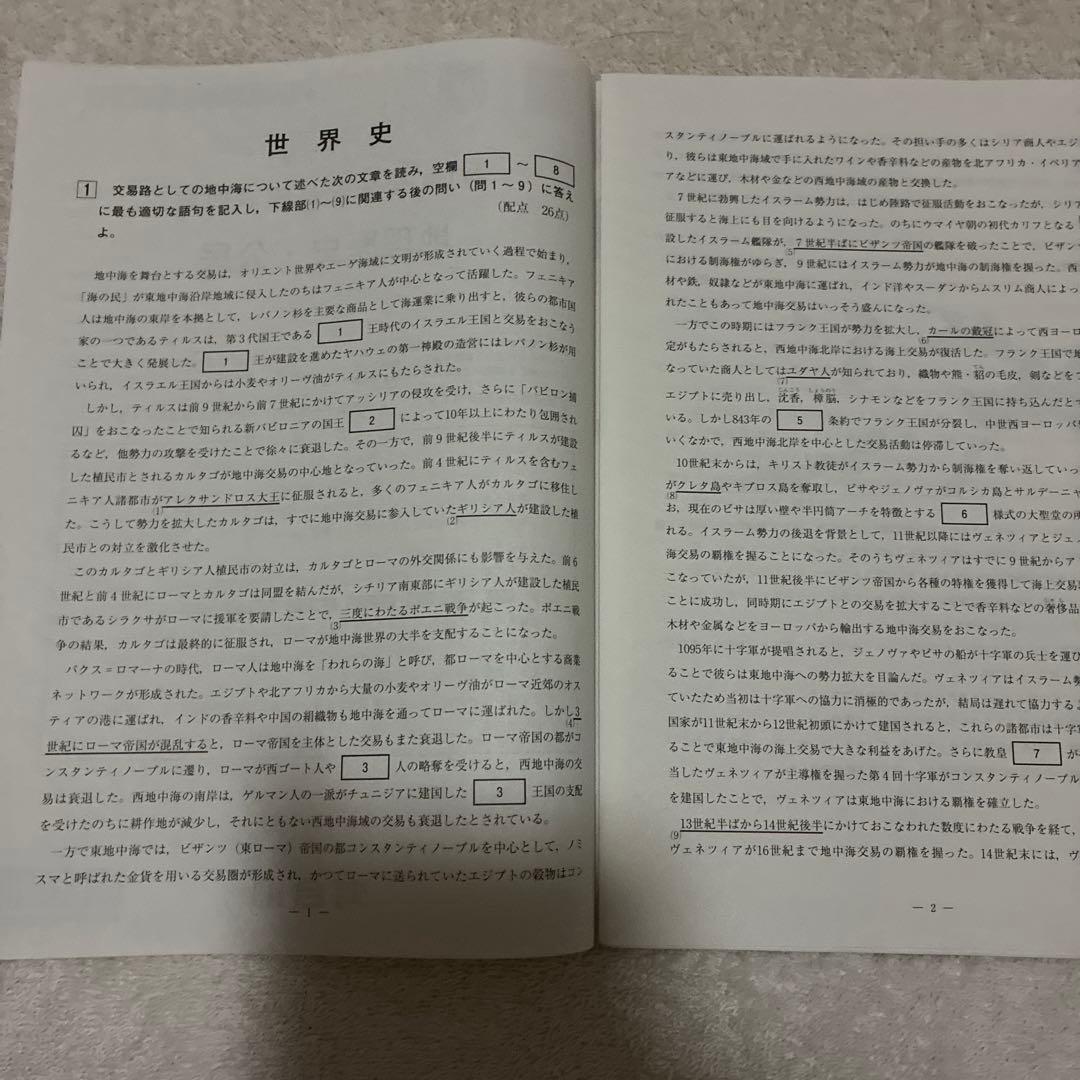 世界史
1 交易路としての地中海について述べた次の文章を読み，空欄 1 ～ 8
に最も適切な語句を記入し，下線部(1)～(9)に関連する後の問い（問1～9）に答え
よ。 （配点 26点）
地中海を舞台とする交易は，オリエント世界やエーゲ海域に文明が形成されていく過程で始まり，
「海の民」が東地中海沿岸地域に侵入したのちはフェニキア人が中心となって活躍した。フェニキア
人は地中海の東岸を本拠として，レバノン杉を主要な商品として海運業に乗り出すと，彼らの都市国
家の一つであるティルスは，第3代国王である 1 王時代のイスラエル王国と交易をおこなう
ことで大きく発展した。 1 王が建設を進めたヤハウェの第一神殿の造営にはレバノン杉が用
いられ，イスラエル王国からは小麦やオリーヴ油がティルスにもたらされた。
しかし，ティルスは前9世紀から前7世紀にかけてアッシリアの侵攻を受け，さらに「バビロン捕
囚」をおこなったことで知られる新バビロニアの国王 2 によって10年以上にわたり包囲され
るなど，他勢力の攻撃を受けたことで徐々に衰退した。その一方で，前9世紀後半にティルスが建設
した植民市とされるカルタゴが地中海交易の中心地となっていった。前4世紀にティルスを含むフェ
ニキア人諸都市がアレクサンドロス大王に征服されると，多くのフェニキア人がカルタゴに移住し
(1)
た。こうして勢力を拡大したカルタゴは，すでに地中海交易に参入していたギリシア人が建設した植
(2)
民市との対立を激化させた。
このカルタゴとギリシア人植民市の対立は，カルタゴとローマの外交関係にも影響を与えた。前6
世紀と前4世紀にローマとカルタゴは同盟を結んだが，シチリア南東部にギリシア人が建設した植民
市であるシラクサがローマに援軍を要請したことで，三度にわたるポエニ戦争が起こった。ポエニ戦
(3)
争の結果，カルタゴは最終的に征服され，ローマが地中海世界の大半を支配することになった。
パクス＝ロマーナの時代，ローマ人は地中海を「われらの海」と呼び，都ローマを中心とする商業
ネットワークが形成された。エジプトや北アフリカから大量の小麦やオリーヴ油がローマ近郊のオス
ティアの港に運ばれ，インドの香辛料や中国の絹織物も地中海を通ってローマに運ばれた。しかし3
(4)
世紀にローマ帝国が混乱すると，ローマ帝国を主体とした交易もまた衰退した。ローマ帝国の都がコ
ンスタンティノープルに遷り，ローマが西ゴート人や 3 人の略奪を受けると，西地中海の交
易は衰退した。西地中海の南岸は，ゲルマン人の一派がチュニジアに建国した 3 王国の支配
を受けたのちに耕作地が減少し，それにともない西地中海域の交易も衰退したとされている。
一方で東地中海では，ビザンツ（東ローマ）帝国の都コンスタンティノープルを中心として，ノミ
スマと呼ばれた金貨を用いる交易圏が形成され，かつてローマに送られていたエジプトの穀物はコン
― 1 ―
スタンティノープルに運ばれるようになった。その担い手の多くはシリア商人やエジ
り，彼らは東地中海域で手に入れたワインや香辛料などの産物を北アフリカ・イベリア
アなどに運び，木材や金などの西地中海域の産物と交換した。
7世紀に勃興したイスラーム勢力は，はじめ陸路で征服活動をおこなったが，シリア
征服すると海上にも目を向けるようになった。のちにウマイヤ朝の初代カリフとなる
設したイスラーム艦隊が，7世紀半ばにビザンツ帝国の艦隊を破ったことで，ビザンツ
(5)
における制海権がゆらぎ，9世紀にはイスラーム勢力が地中海の制海権を握った。西
材や鉄，奴隷などが東地中海に運ばれ，インド洋やスーダンからムスリム商人によっ
れたこともあって地中海交易はいっそう盛んになった。
一方でこの時期にはフランク王国が勢力を拡大し，カールの戴冠によって西ヨーロ
(6)
定がもたらされると，西地中海北岸における海上交易が復活した。フランク王国で地
なっていた商人としてはユダヤ人が知られており，織物や熊・貂の毛皮，剣などをフ
(7)
エジプトに売り出し，沈香，樟脳，シナモンなどをフランク王国に持ち込んだとさ
いる。しかし843年の 5 条約でフランク王国が分裂し，中世西ヨーロッパ
いくなかで，西地中海北岸を中心とした交易活動は停滞していった。
10世紀末からは，キリスト教徒がイスラーム勢力から制海権を奪い返していっ
がクレタ島やキプロス島を奪取し，ピサやジェノヴァがコルシカ島とサルデーニャ
(8)
お，現在のピサは厚い壁や半円筒アーチを特徴とする 6 様式の大聖堂の所
れる。イスラーム勢力の後退を背景として，11世紀以降にはヴェネツィアとジェノ
海交易の覇権を握ることになった。そのうちヴェネツィアはすでに9世紀からア
こなっていたが，11世紀後半にビザンツ帝国から各種の特権を獲得して海上交易
ことに成功し，同時期にエジプトとの交易を拡大することで香辛料などの奢侈品
木材や金属などをヨーロッパから輸出する地中海交易をおこなった。
1095年に十字軍が提唱されると，ジェノヴァやピサの船が十字軍の兵士を運び
ることで彼らは東地中海への勢力拡大を目論んだ。ヴェネツィアはイスラーム勢
ていたため当初は十字軍への協力に消極的であったが，結局は遅れて協力する
国家が11世紀末から12世紀初頭にかけて建国されると，これらの諸都市は十字
ることで東地中海の海上交易で大きな利益をあげた。さらに教皇 7 が
当したヴェネツィアが主導権を握った第4回十字軍がコンスタンティノープル
を建国したことで，ヴェネツィアは東地中海における覇権を確立した。
13世紀半ばから14世紀後半にかけておこなわれた数度にわたる戦争を経て，
(9)
ヴェネツィアが16世紀まで地中海交易の覇権を握った。14世紀末には，ヴ
― 2 ―